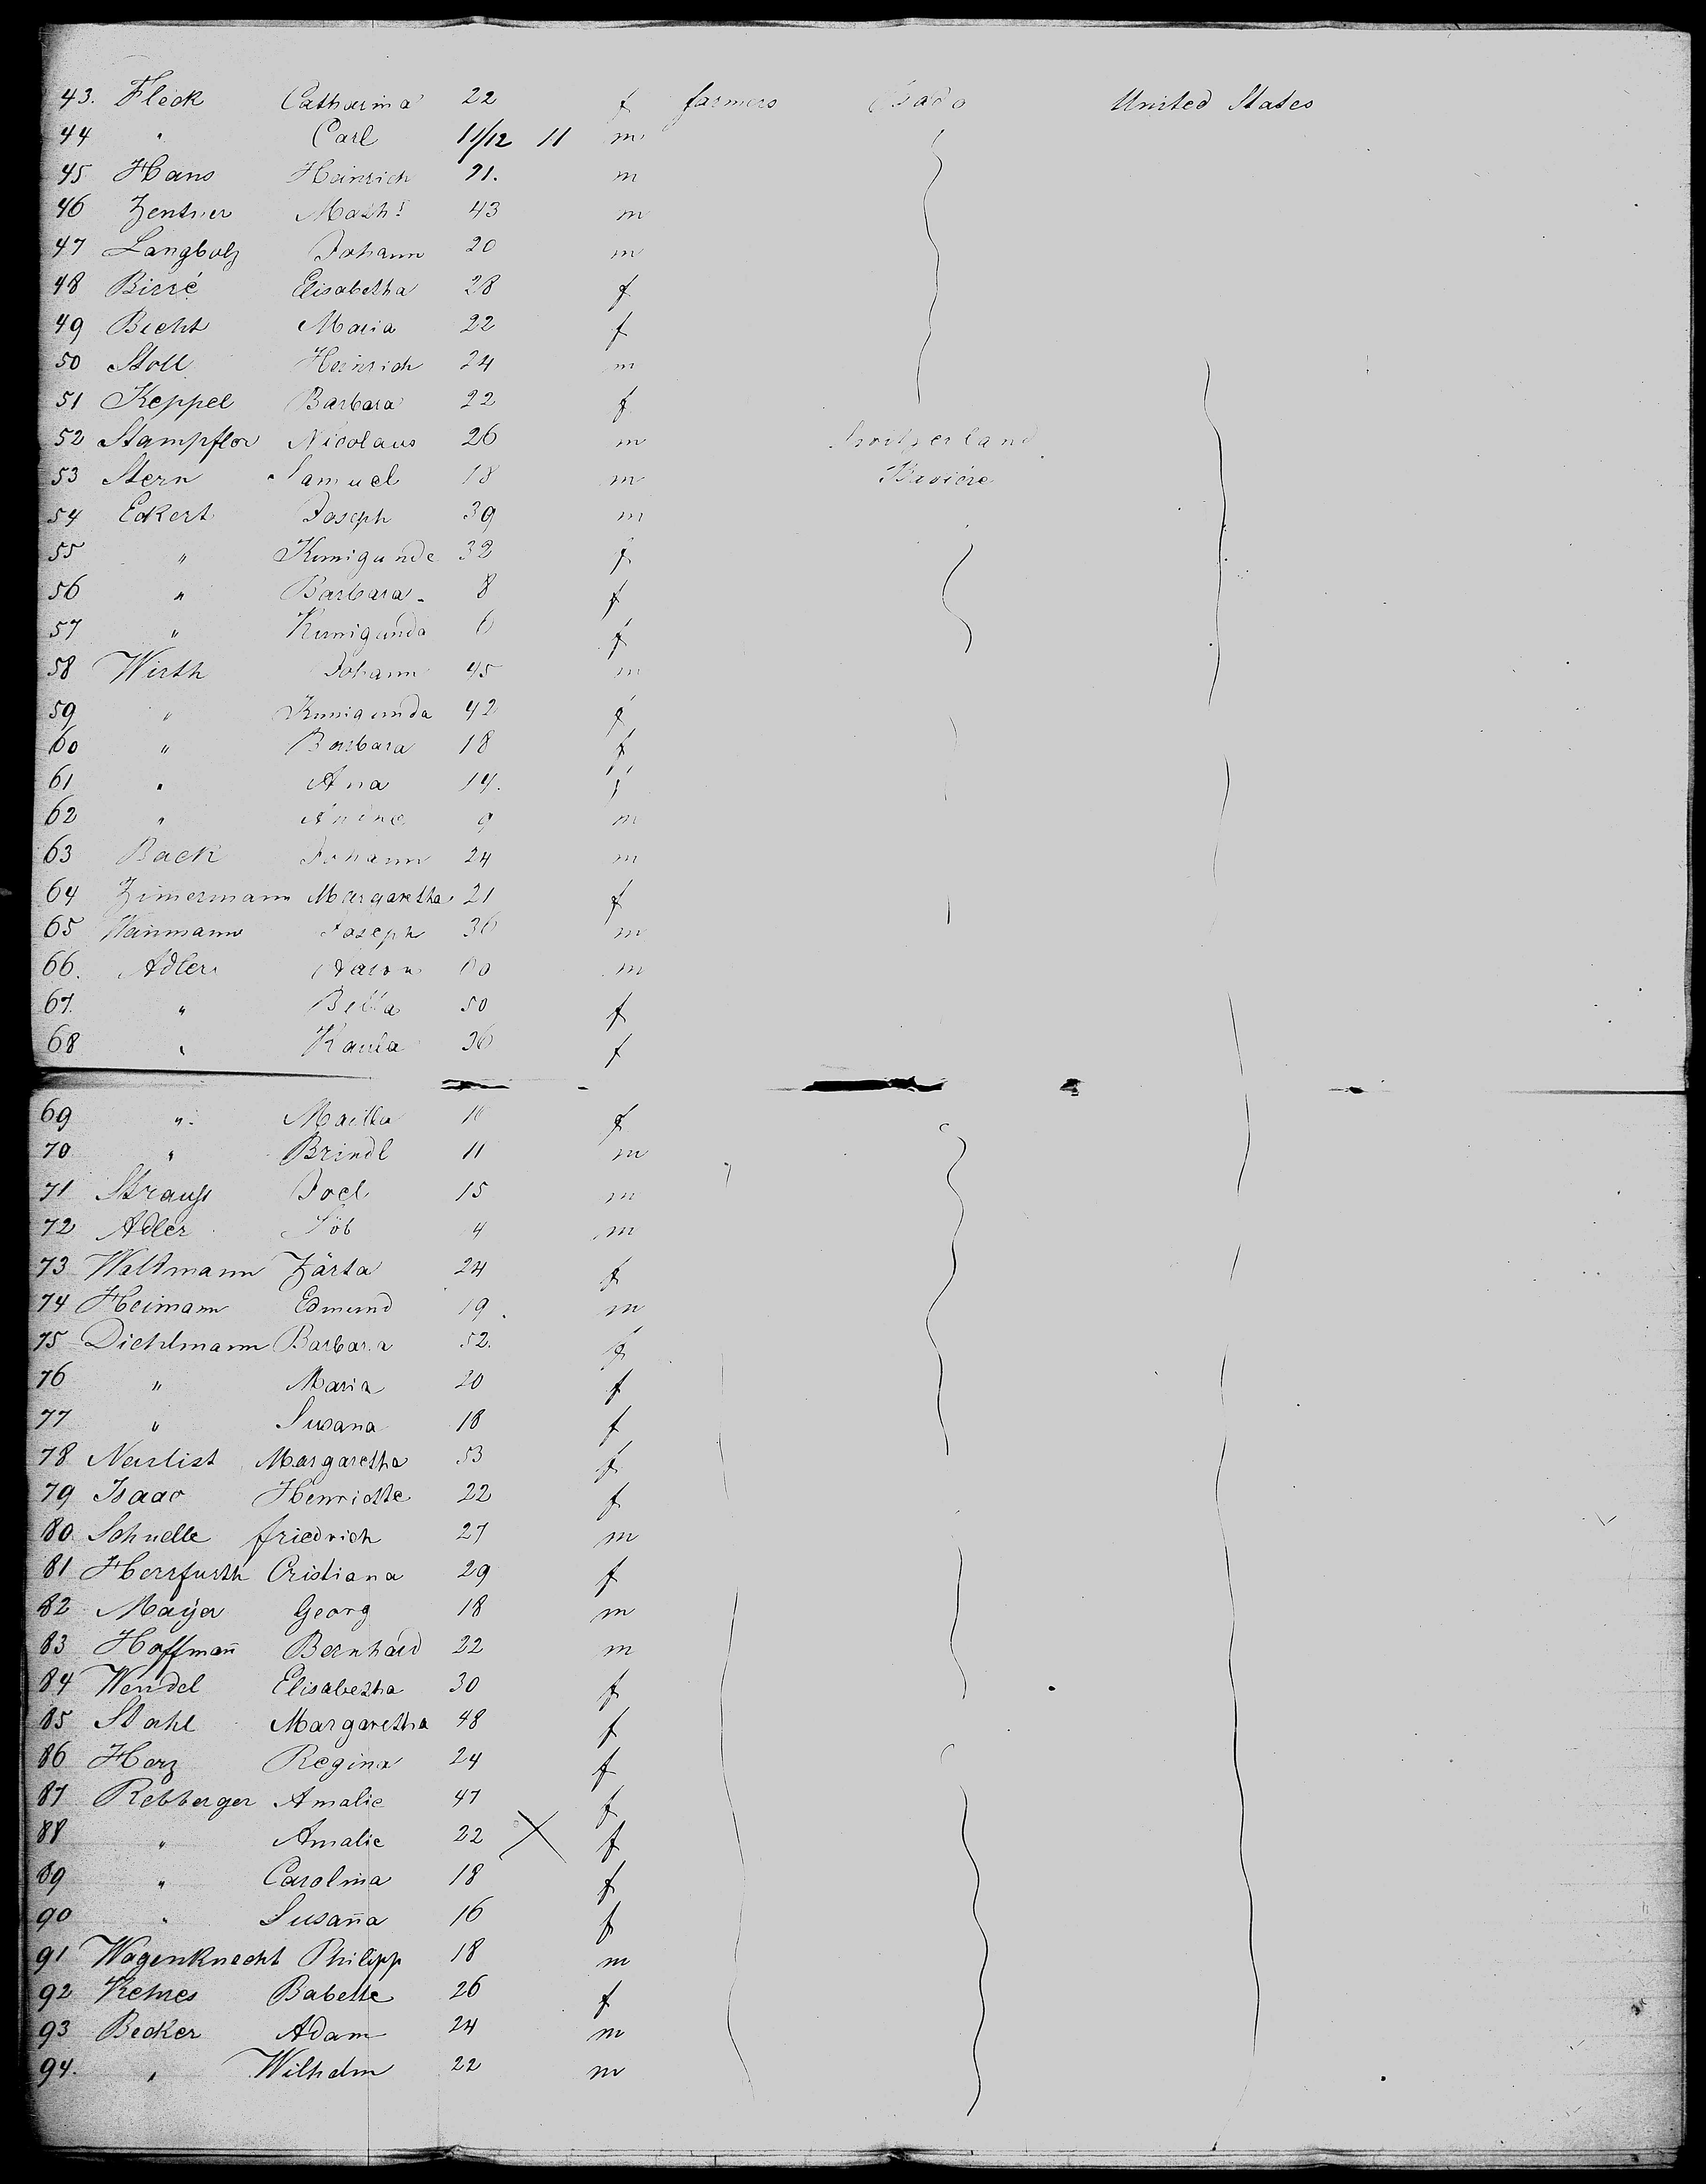 43. Fleck Catharina 22 f farmers Bado United States
44 " Carl 11/12 11 m
45 Hans Heinrich 21. m
46 Zentner Math: 43 m
47 Langbolz Johann 20 m
48 Birré Elisabetha 28 f
49 Becht Maria 22 f
50 Stoll Heinrich 24 m
51 Keppel Barbara 22 f
52 Stampfler Nicolaus 26 m Switzerland
53 Stern Samuel 18 m Bavière
54 Eckert Joseph 39 m
55 " Kunigunde 32 f
56 " Barbara 8 f
57 " Kunigunda 6 f
58 Wirth Johann 45 m
59 " Kunigunda 42 f
60 " Barbara 18 f
61 " Ana 14. f
62 " 9 m
63 Back Johann 24 m
64 Zimermann Margaretha 21 f
65 Wanmann Joseph 36 m
66. Adler 60 m
67. " Bella 50 f
68 " 36 f
69 " f
70 " Brindl 11 m
71 Strauss Joel 15 m
72 Adler Löb 4 m
73 Waltmann Zärta 24 f
74 Heimann Edmund 19. m
75 Diehlmann Barbara 52. f
76 " Maria 20 f
77 " Susana 18 f
78 Neurlist Margaretha 53 f
79 Isaac Henriette 22 f
80. Schnelle friedrich 27 m
81 Herrfurth Cristiana 29 f
82 Mayer Georg 18 m
83 Hoffmañ Bernhard 22 m
84 Wendel Elisabetha 30 f
85 Stahl Margaretha 48 f
86 Herz Regina 24 f
87 Rebberger Amalie 47 f
88 " Amalie 22 X f
89 " Carolina 18 f
90 " Susaña 16 f
91 Wagenknecht Philipp 18 m
92 Kehres Babette 26 f
93 Becker Adam 24 m
94. " Wilhelm 22 m